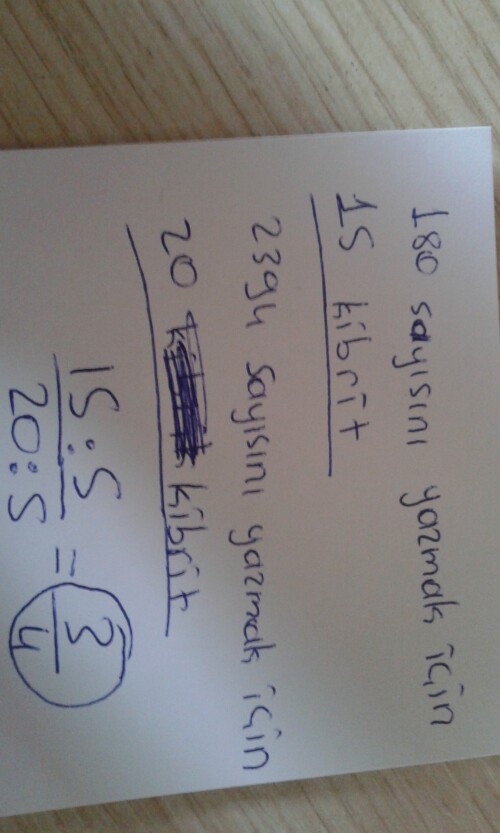 180 sayısını yazmak için
15 kibrit
2394 sayısını yazmak için
20 kibrit
15:5
20:5 = 3/4